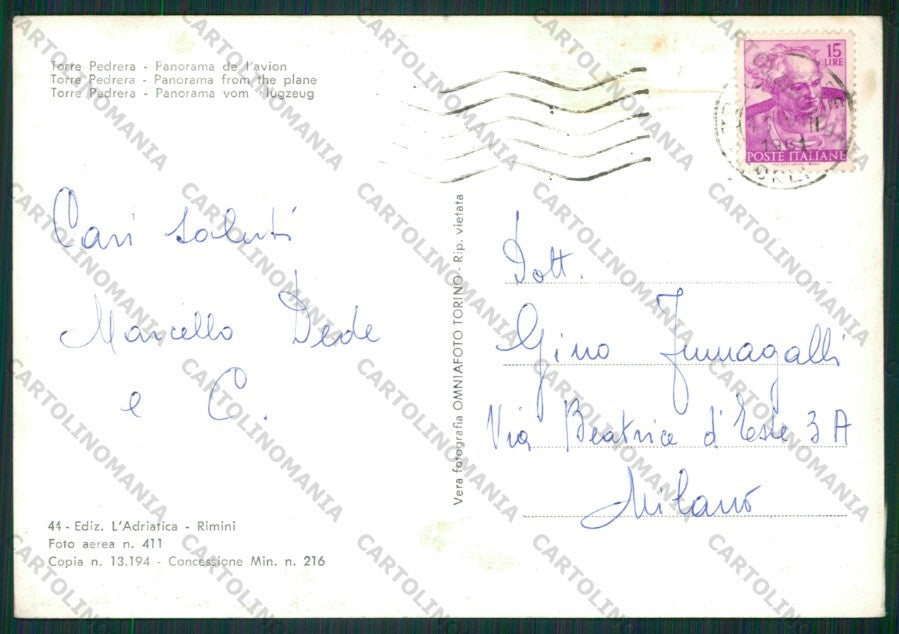 Torre Pedrera - Panorama de l'avion
Torre Pedrera - Panorama from the plane
Torre Pedrera - Panorama vom Flugzeug
15
LIRE
POSTE ITALIANE
Cari saluti
Marcello Dede
e C.
Vera fotografia OMNIAFOTO TORINO - Rip. vietata
Dott.
Gino Fumagalli
Via Beatrice d'Este 3 A
Milano
44 - Ediz. L'Adriatica - Rimini
Foto aerea n. 411
Copia n. 13.194 - Concessione Min. n. 216
CARTOLINOMANIA